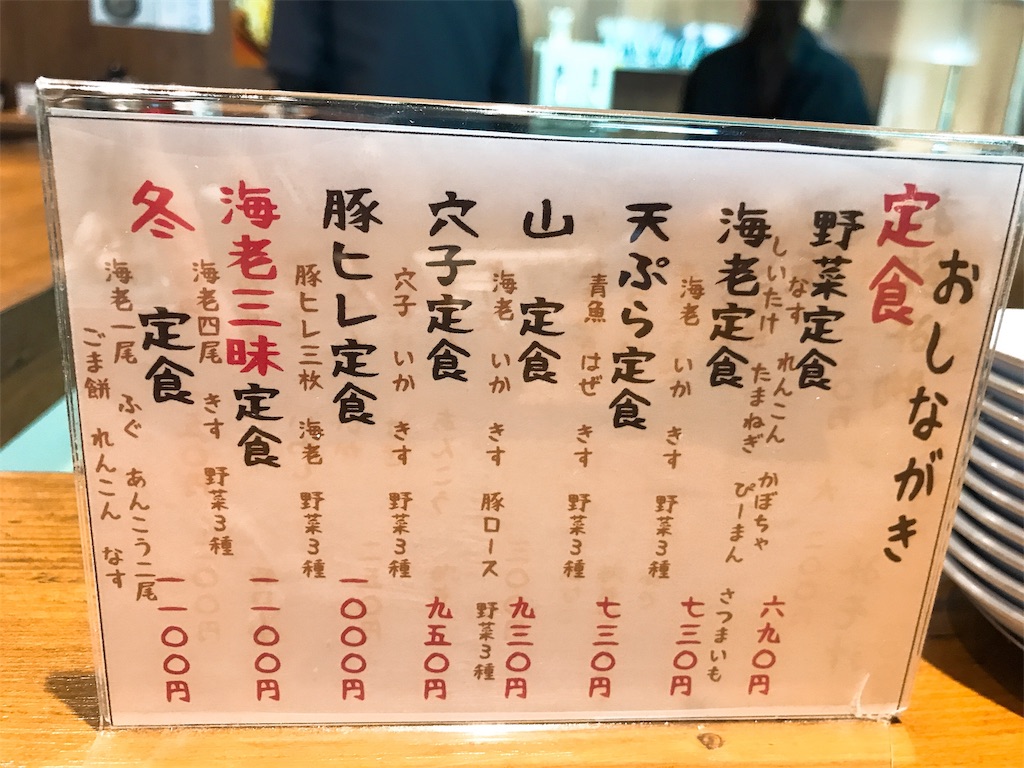 おしながき
定食
野菜定食 六九〇円
なす れんこん かぼちゃ さつまいも
しいたけ たまねぎ ぴーまん
海老定食 七三〇円
海老 いか きす 野菜3種
天ぷら定食 七三〇円
青魚 はぜ きす 野菜3種
山 定食 九三〇円
海老 いか きす 豚ロース 野菜3種
穴子定食 九五〇円
穴子 いか きす 野菜3種
豚ヒレ定食 一〇〇〇円
豚ヒレ三枚 海老 野菜3種
海老三昧定食 一一〇〇円
海老四尾 きす 野菜3種
冬 定食 一一〇〇円
海老一尾 ふぐ あんこう二尾
ごま餅 れんこん なす